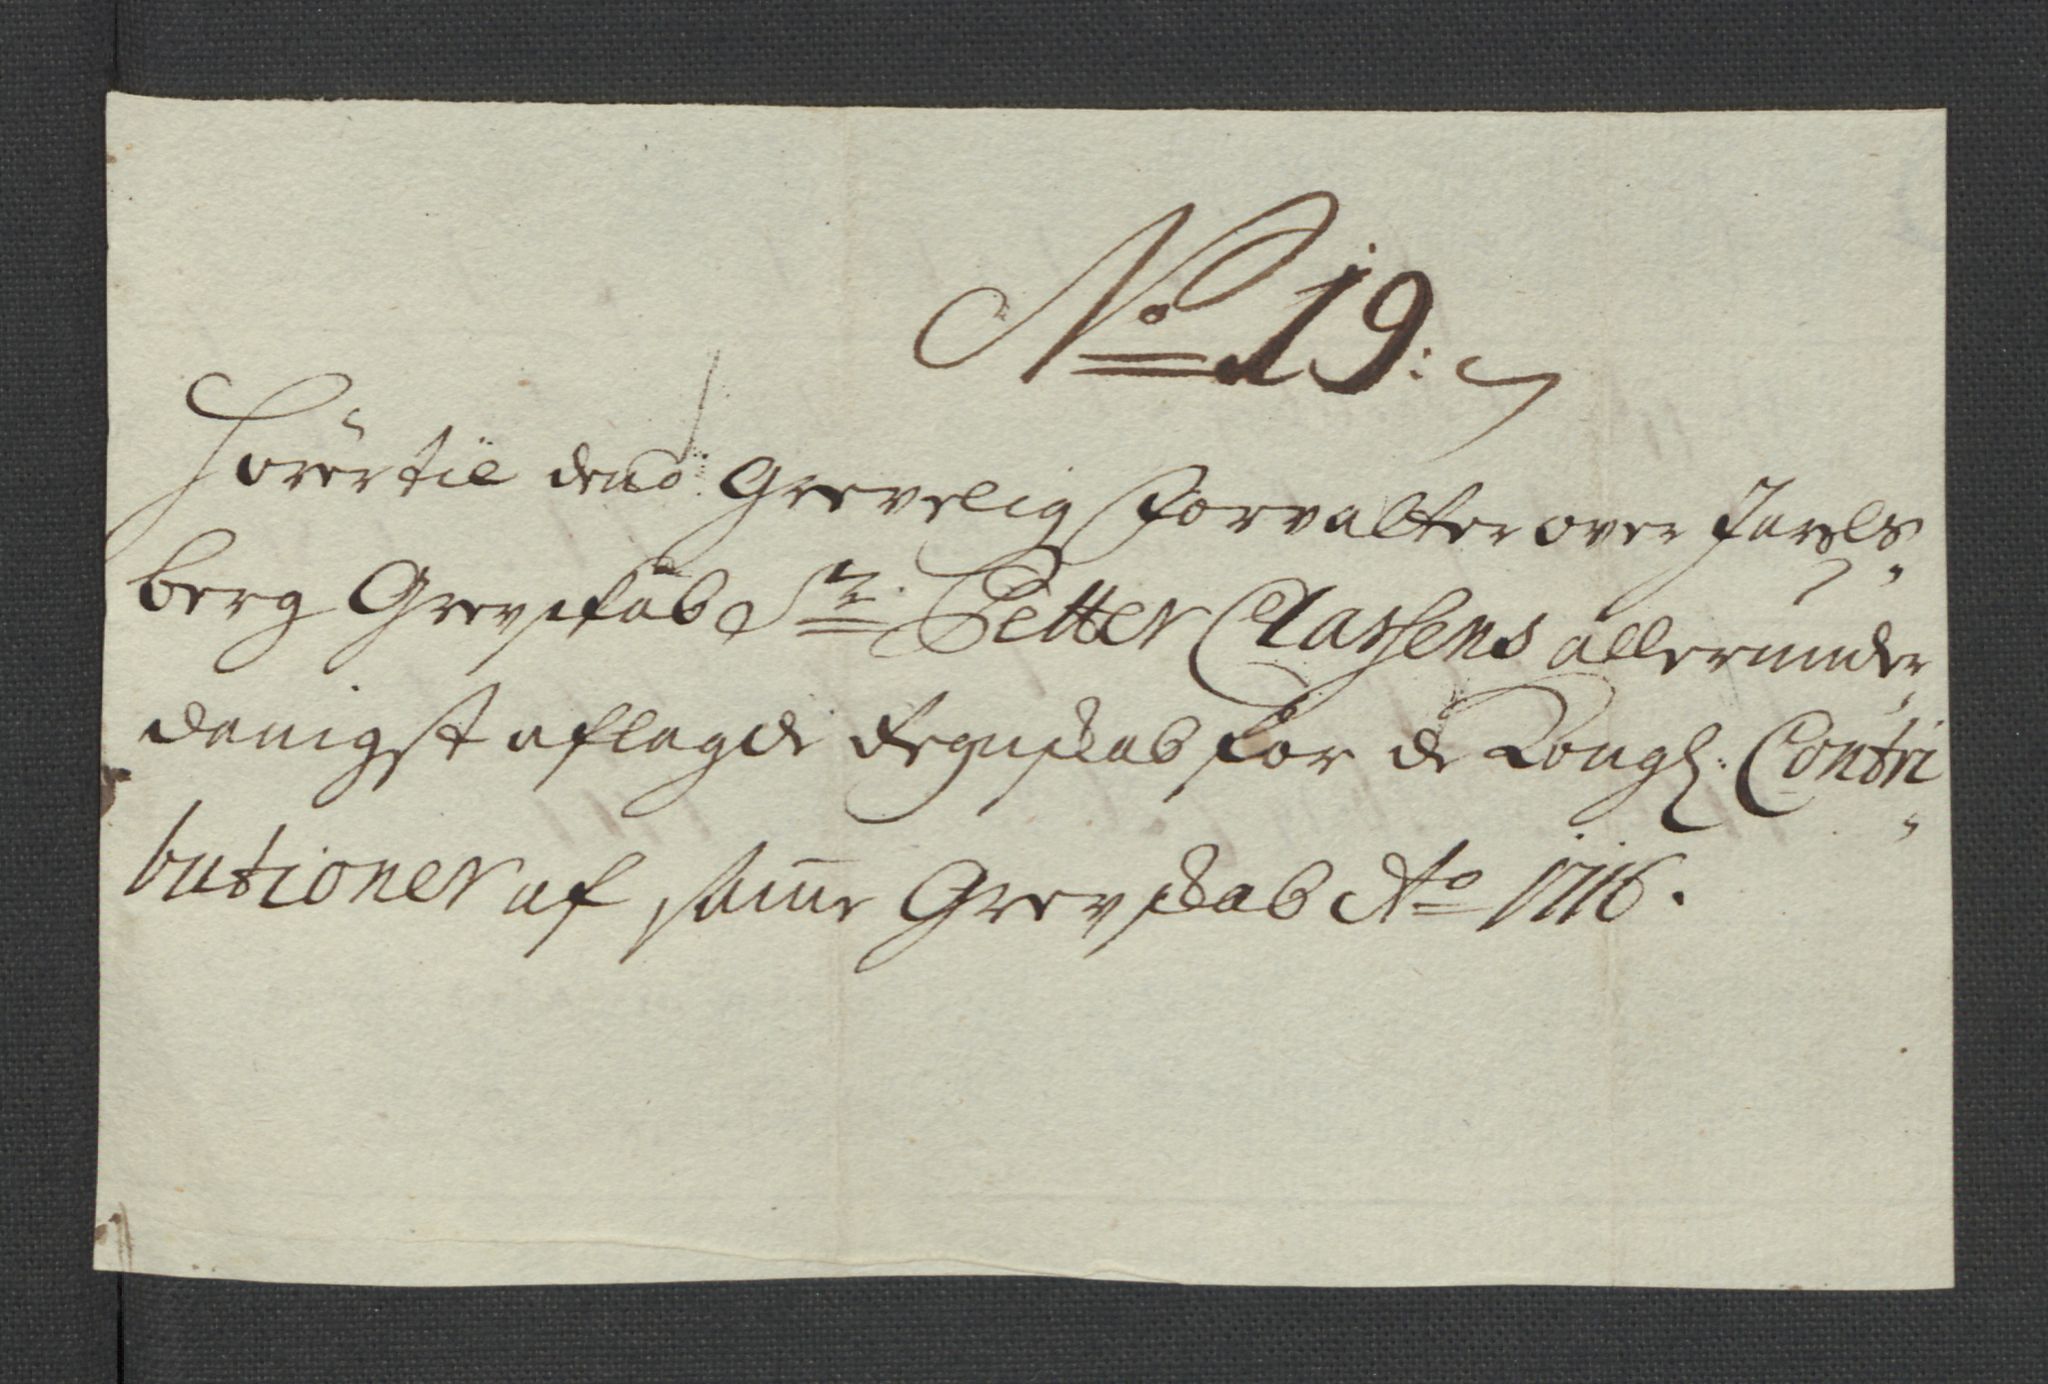 No 19:
Hörer til den Grevelig Forvalter over Jarls-
berg Grevskab Sr. Petter Classens allerunder-
danigst aflagde Regnskab for de Kongl: Contri-
butioner af samme Grevskab Ao 1716.